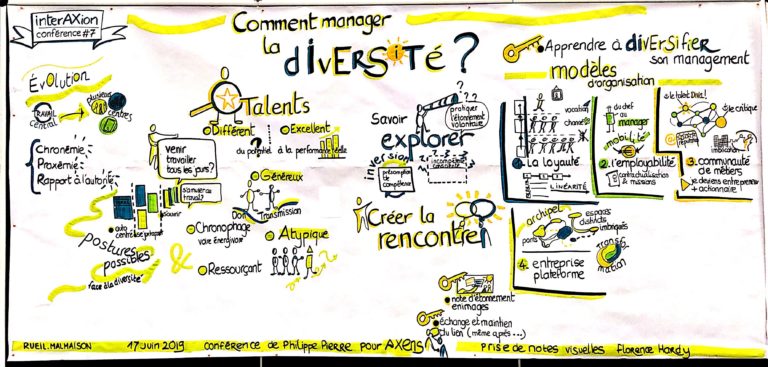 interAXion
conférence #7
Comment manager
la diversité ?
Évolution
TRAVAIL
central
plusieurs
centres
Chronémie
Proxémie
Rapport à l'autorité
venir
travailler
tous les jours ?
s'amuser au
travail ?
auto
postures
possibles
face à la diversité
Talents
Différent
Excellent
du potentiel à la performance réelle
Généreux
Don
Transmission
Chronophage
voire énergivore
&
Ressourçant
Atypique
Savoir
explorer
pratiquer
l'étonnement
volontaire
Inversion
présomption
de
compétence
incompétence
Créer la
rencontre
note d'étonnement
en images
échange et maintien
du lien (même après...)
Apprendre à diversifier
son management
modèles
d'organisation
vocation
chance
1. La loyauté
LINÉARITÉ
du chef
au
manager
mobilité
2. l'employabilité
contractualisation
& missions
le talent Dies!
le critique
3. communauté
de métiers
je deviens entrepreneur
actionnaire !
archipel
ports
espaces
districts
imbriqués
Transfor
mation
4. entreprise
plateforme
RUEIL.MALMAISON
17 Juin 2019
conférence de Philippe Pierre pour AXENS
Prise de notes visuelles Florence Hardy